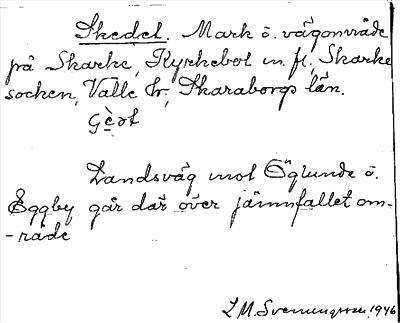 Skedet. Mark o. vägområde
på Skarke, Kyrkebol m. fl., Skarke
socken, Valle hd., Skaraborgs län.
Landsväg mot Öglunda o.
Eggby går där över jämnfallet om-
-råde
L M. Svenungsson 1946